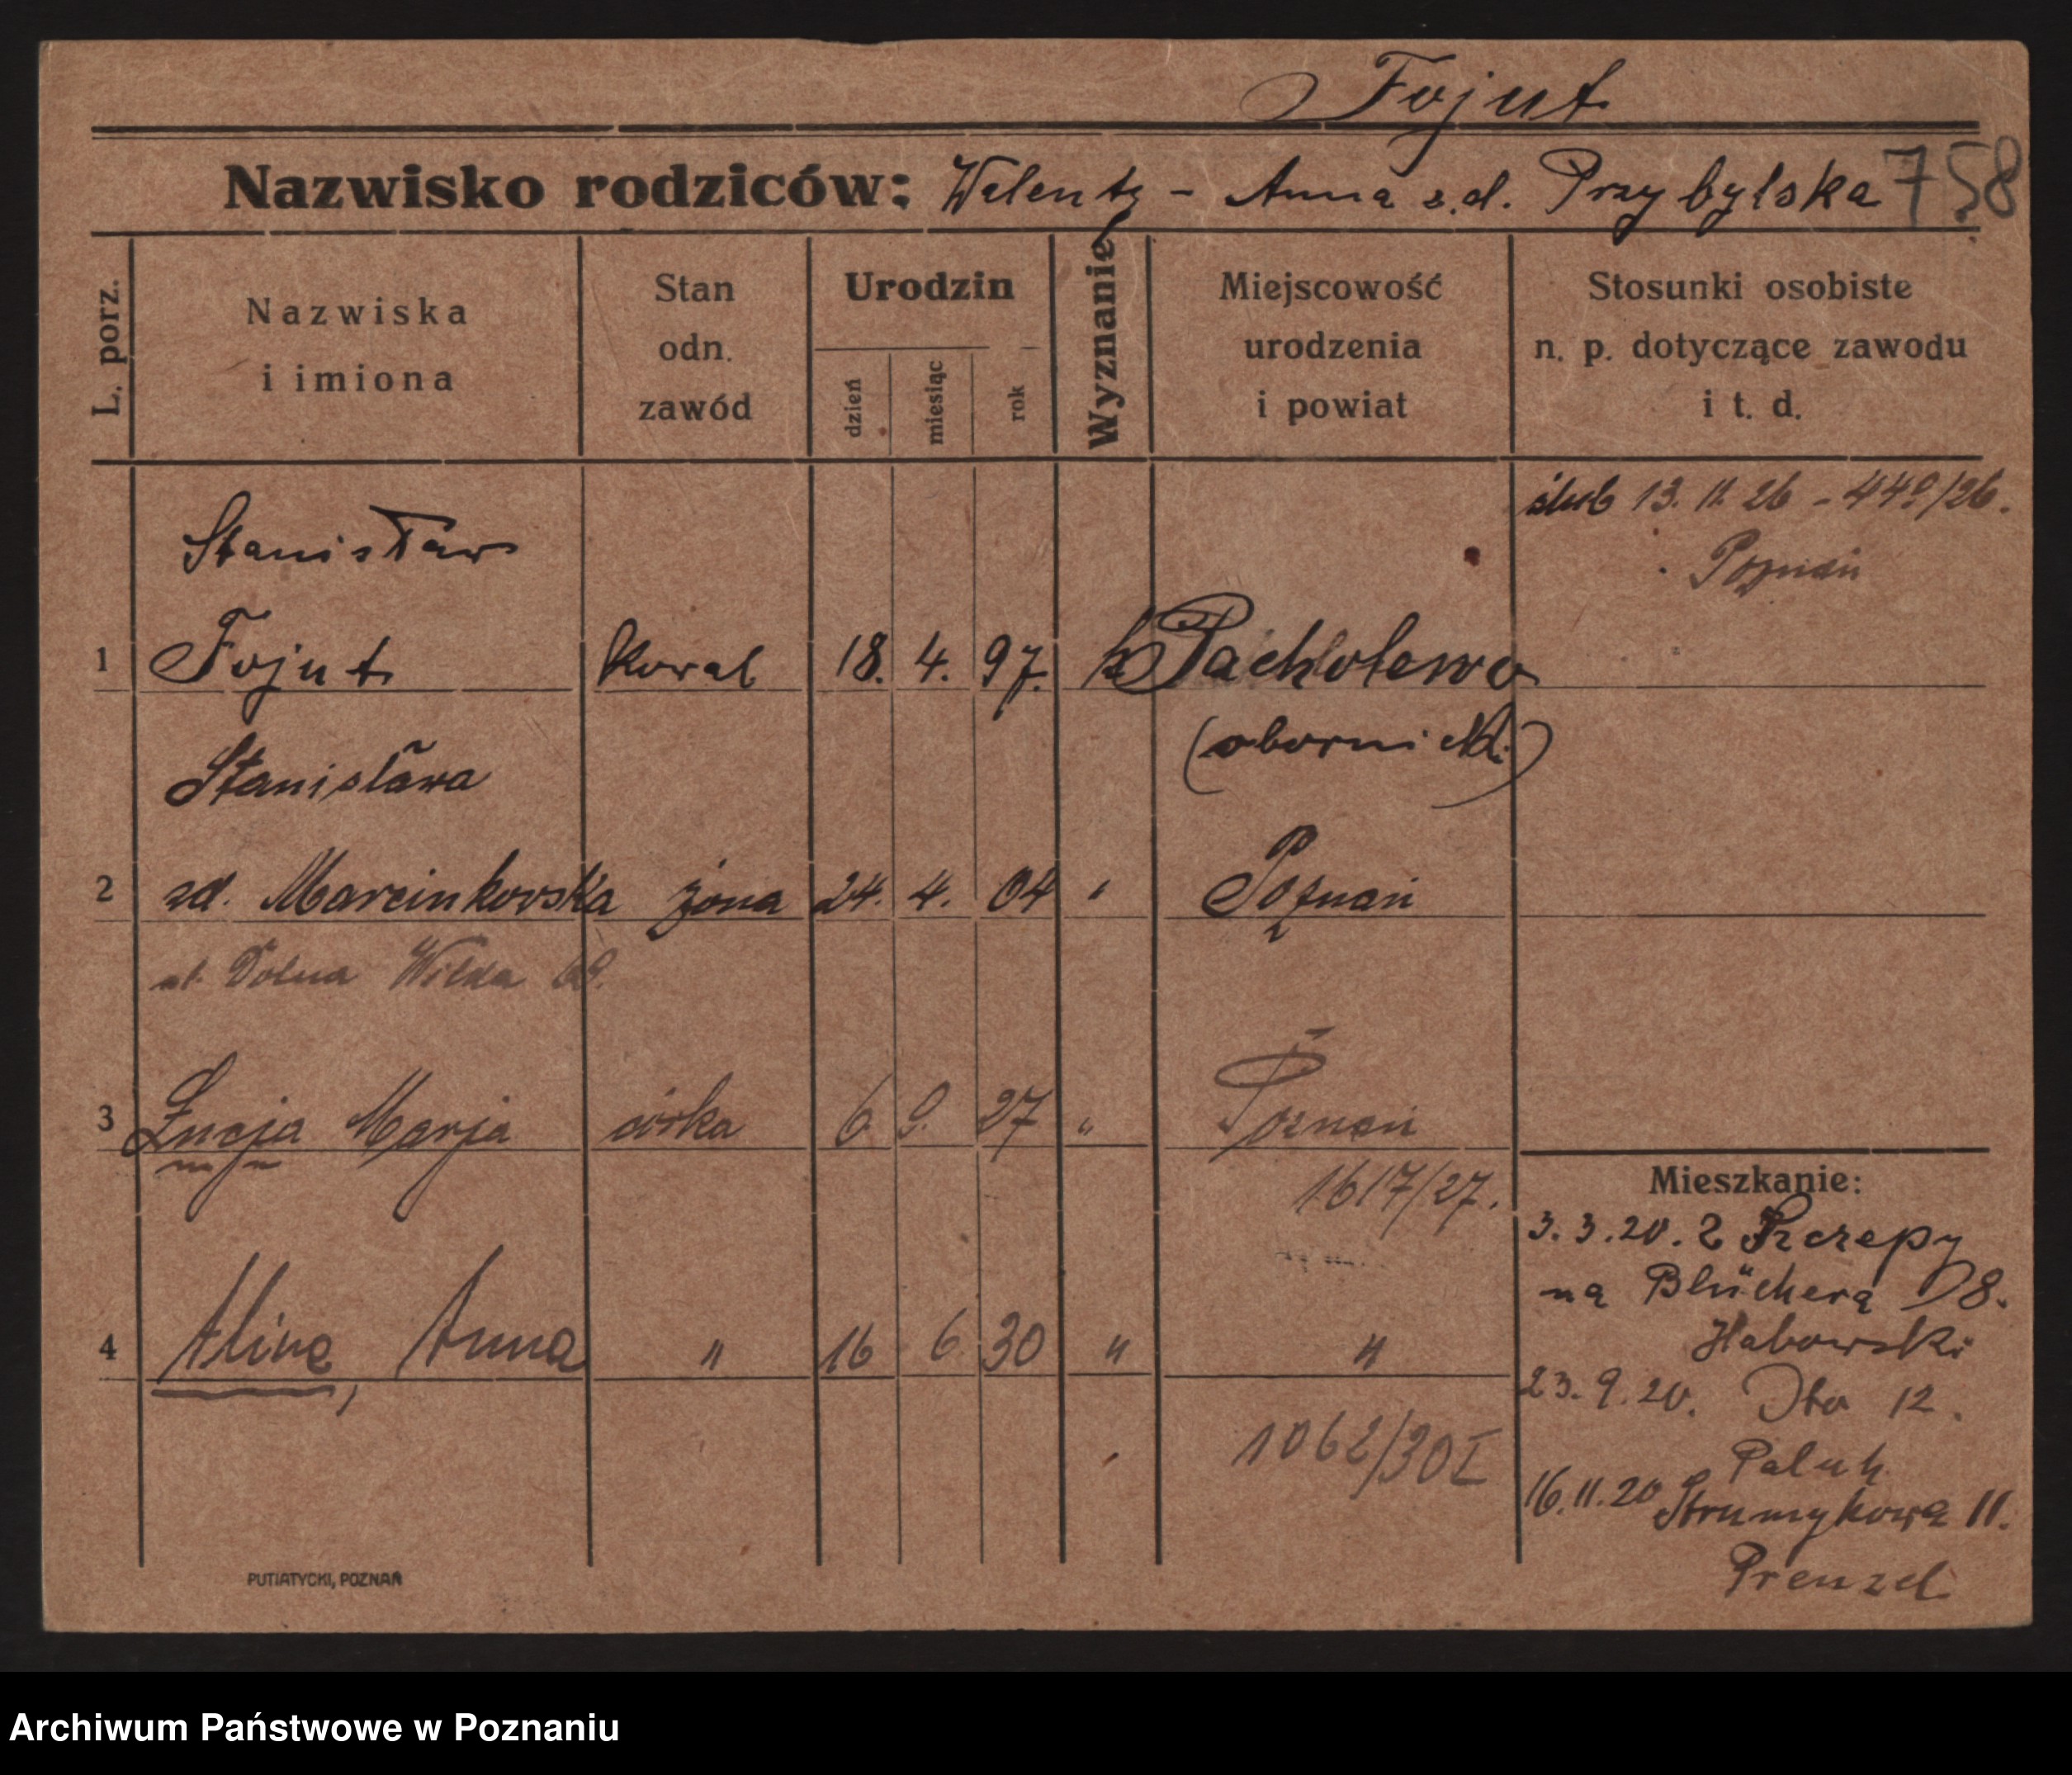 Fojut
Nazwisko rodziców: Walenty - Anna z.d. Przybylska 758
L. porz.
Nazwiska
i imiona
Stan
odn.
zawód
Urodzin
dzień
miesiąc
rok
Wyznanie
Miejscowość
urodzenia
i powiat
Stosunki osobiste
n. p. dotyczące zawodu
i t. d.
ślub 13. 11. 26 - 449/26.
Poznań
Stanisław
1 Fojut kowal 18. 4. 97. k Pacholewo
(obornicki)
Stanisława
2 zd. Marcinkowska żona 24. 4. 04 " Poznań
ul. Dolna Wilda
3 Łucja Marja córka 6 9. 27 " Poznań
1617/27.
4 Alina, Anna " 16 6 30 " "
1062/30 I
Mieszkanie:
3. 3. 20. z Szczepy
na Blüchera 8.
Habowski
23. 9. 20. 12.
Paluch
16. 11. 20 Strumykowa 11.
Prenzel
PUTIATYCKI, POZNAŃ
Archiwum Państwowe w Poznaniu